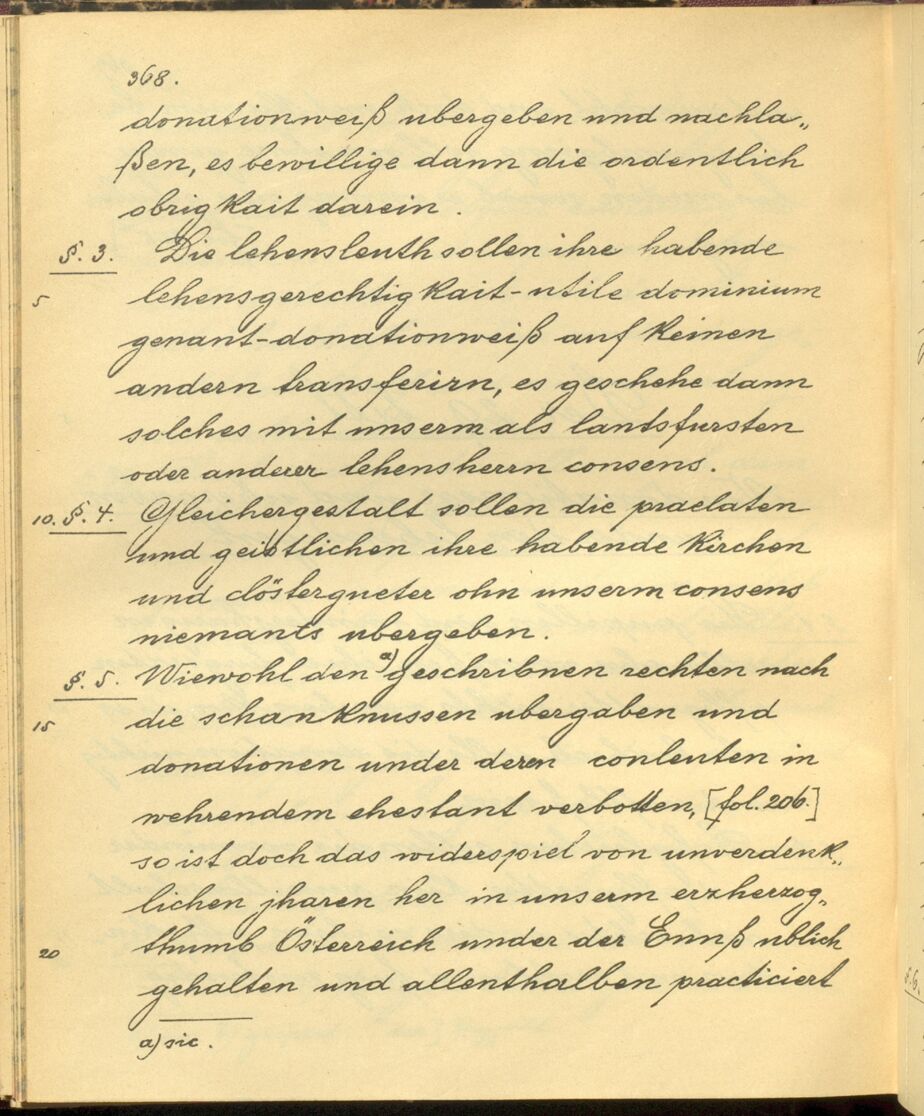 368.
donationweiß ubergeben und nachla„
ßen, es bewillige dann die ordentlich
obrigkait darein.
§. 3. Die lehensleuth sollen ihre habende
5 lehensgerechtigkait-utile dominium
genant-donationweiß auf keinen
andern transferirn, es geschehe dann
solches mit unserm als lantsfursten
oder anderer lehensherrn consens.
10. §. 4. Gleichergestalt sollen die praelaten
und geistlichen ihre habende kirchen
und clöstergueter ohn unserm consens
niemants ubergeben.
§. 5. Wiewohl den a) geschribnen rechten nach
15 die schanknussen ubergaben und
donationen under deren conleuten in
wehrendem ehestant verbotten, [fol. 206.]
so ist doch das widerspiel von unverdenk„
lichen jharen her in unserm erzherzog„
20 thumb Österreich under der Ennß ublich
gehalten und allenthalben practiciert
a) sic.
§. 6.